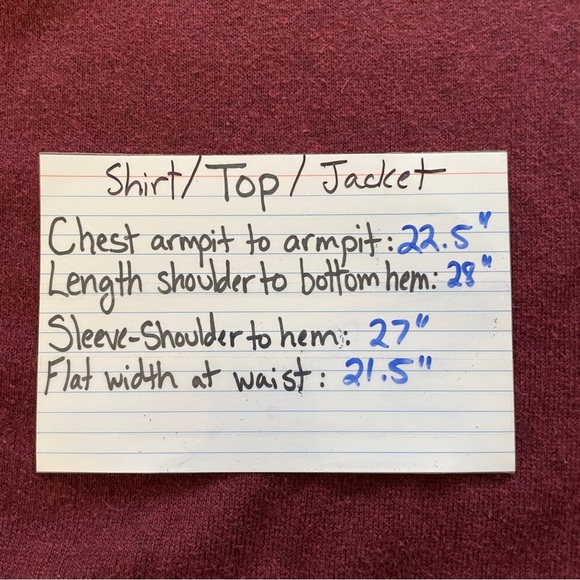 Shirt/Top/Jacket
Chest armpit to armpit: 22.5"
Length shoulder to bottom hem: 28"
Sleeve-Shoulder to hem: 27"
Flat width at waist: 21.5"